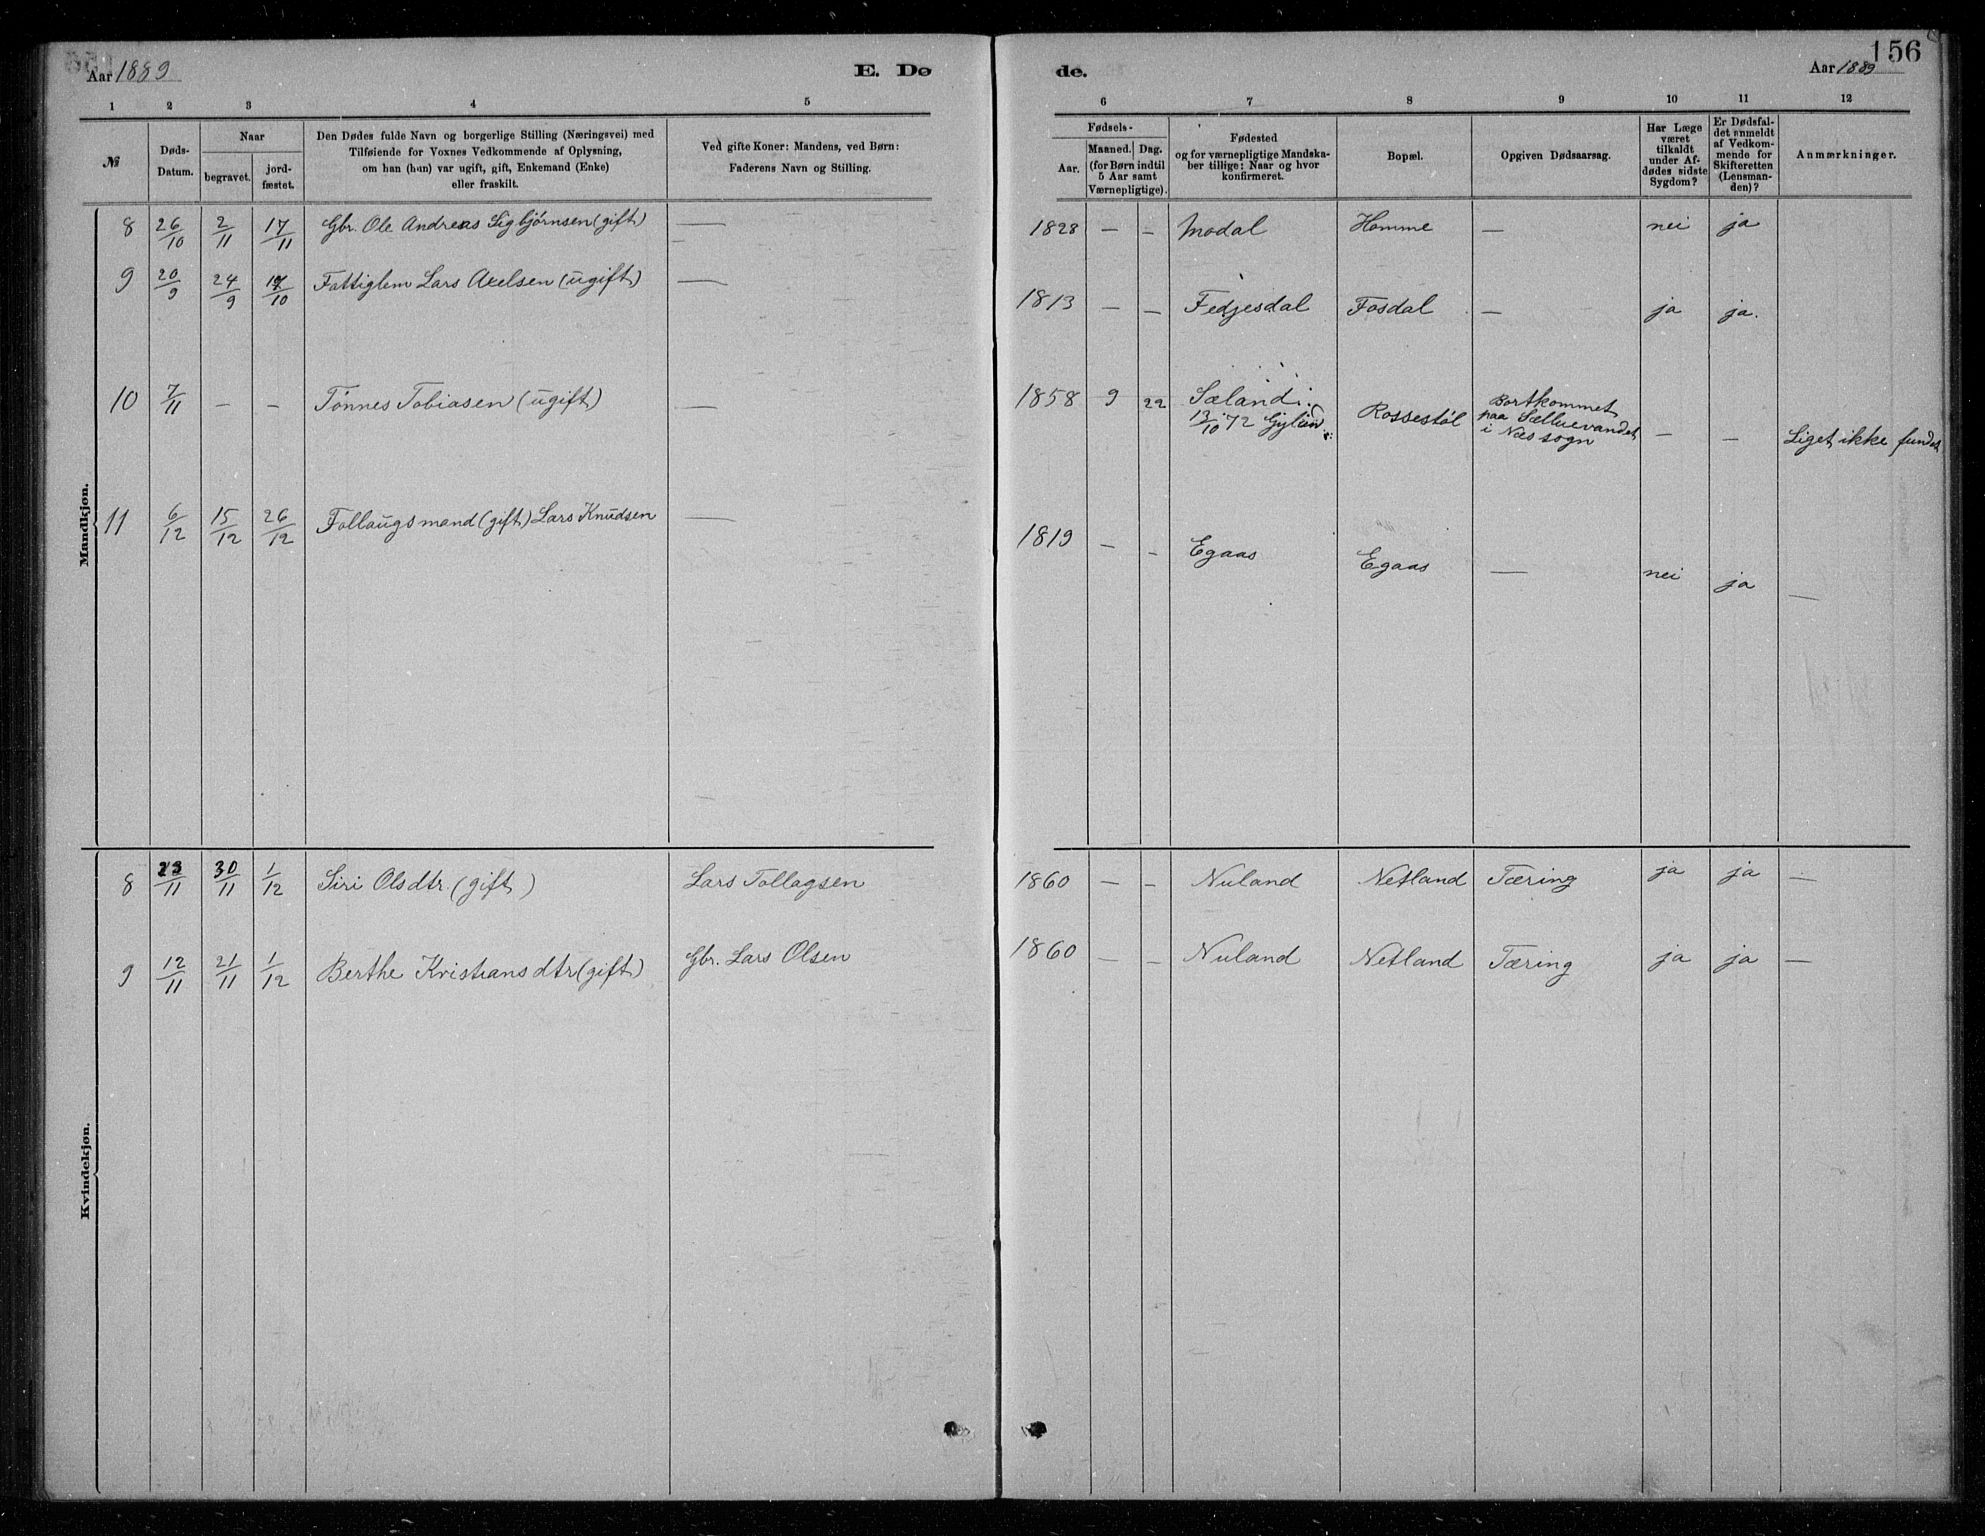 156
Aar 1889
E. Dø
de.
Aar 1889
1 2 3 4 5 6 7 8 9 10 11 12
№
Døds-
Datum.
Naar
begravet.
jord-
fæstet.
Den Dødes fulde Navn og borgerlige Stilling (Næringsvei) med
Tilføiende for Voxnes Vedkommende af Oplysning,
om han (hun) var ugift, gift, Enkemand (Enke)
eller fraskilt.
Ved gifte Koner: Mandens, ved Børn:
Faderens Navn og Stilling.
Fødsels-
Aar.
Maaned. Dag.
(for Børn indtil
5 Aar samt
Værnepligtige).
Fødested
og for værnepligtige Mandska-
ber tillige: Naar og hvor
konfirmeret.
Bopæl.
Opgiven Dødsaarsag.
Har Læge
været
tilkaldt
under Af-
dødes sidste
Sygdom?
Er Dødsfal-
det anmeldt
af Vedkom-
mende for
Skifteretten
(Lensman-
den)?
Anmærkninger.
Mandkjøn.
8 26/10 2/11 17/11 Gbr. Ole Andreas Sigbjørnsen (gift) — 1828 — — Modal Homme — nei ja
9 20/9 24/9 /10 Fattiglem Lars Axelsen (ugift) — 1813 — — Fedjesdal Fosdal — ja ja.
10 7/11 — — Tønnes Tobiasen (ugift) — 1858 9 22 Sæland i
13/10 72 Rossestøl
Bortkommet
paa Sælluevandet
i Næs sogn
— — Liget ikke fundet
11 6/12 15/12 26/12 Follaugsmand (gift) Lars Knudsen — 1819 — — Egaas Egaas — nei ja —
Kvindekjøn.
8 23/11 30/11 1/12 Siri Olsdtr. (gift) Lars Tollagsen 1860 — — Nuland Netland Tæring ja ja —
9 12/11 21/11 1/12 Berthe Kristiansdtr (gift) Gbr. Lars Olsen 1860 — — Nuland Netland Tæring ja ja —